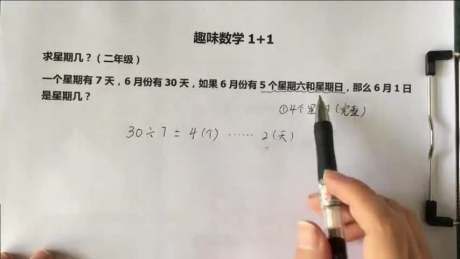 趣味数学 1+1
求星期几？（二年级）
一个星期有 7 天，6 月份有 30 天，如果 6 月份有 5 个星期六和星期日，那么 6 月 1 日
是星期几？
①4个星 （完整）
30÷7=4(个)……2(天)